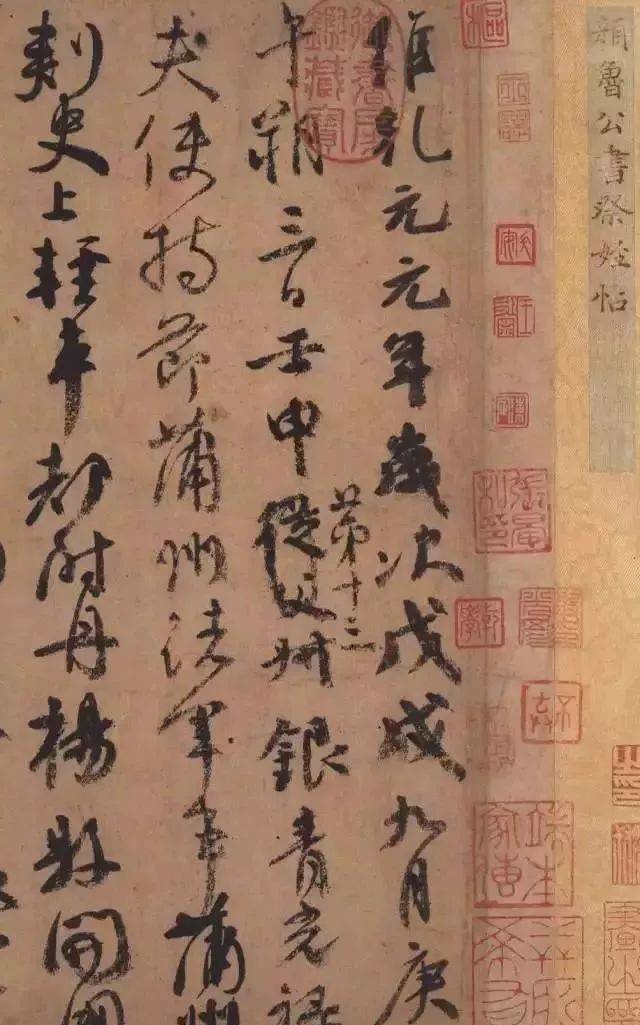 顏魯公書祭姪帖
維乾元元年歲次戊戌九月庚
午朔三日壬申從父第十三叔銀青光祿
夫使持節蒲州諸軍事蒲州
刺史上輕車都尉丹楊縣開國
御書房鑑藏寶